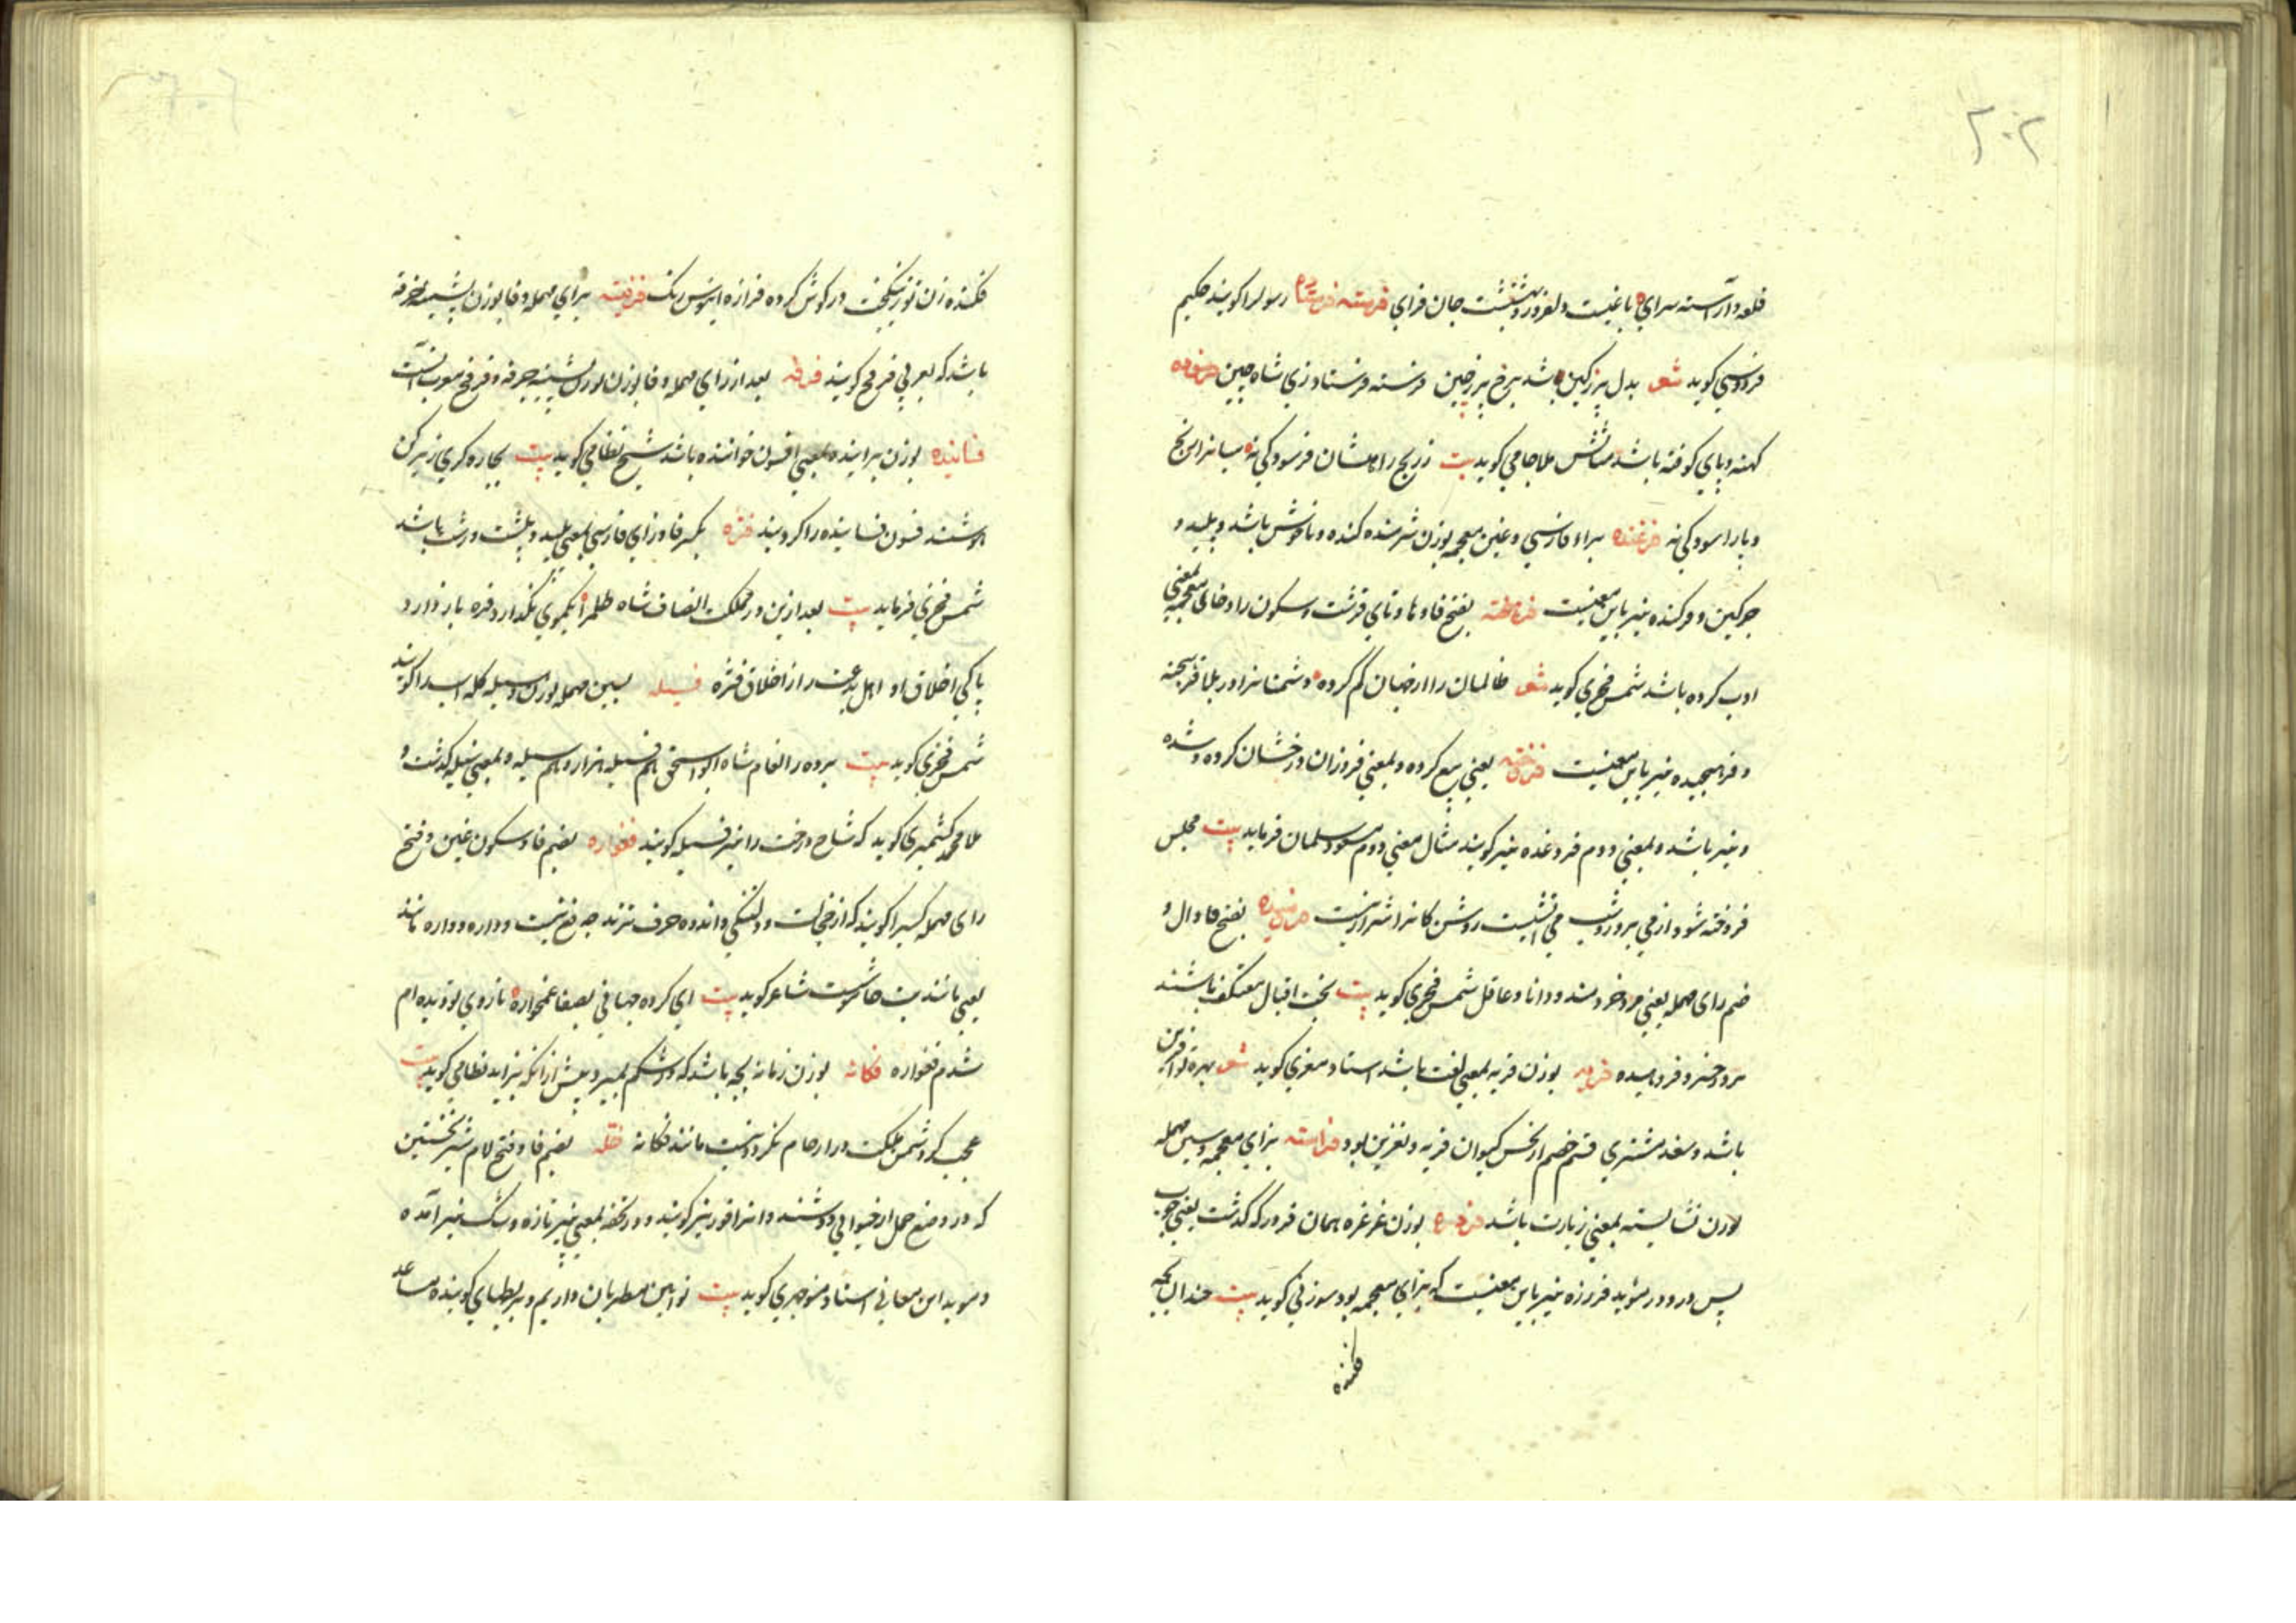 ۲۰۲
قلعه و آراسته سرای باغیست دلفروز بهشتیست جان فزای فرسته فرستاده رسولرا کویند حکیم
فردوسی کوید شعر بدل پر ز کین باشد برخ پر ز چین فرسته فرستاد زی شاه چین فرسوده
کهنه و پای کوفته باشد مثالش ملا جامی کوید بیت ز رنج راهشان فرسودکی نه میانرا از
و بار اسودکی نه فرغنده براء فارسی و غین معجمه بوزن شرمنده کنده و ناخوش باشد و پلید و
چرکین و فرکنده نیز باین معنیست فرهخته بفتح فا و ها و تای قرشت و سکون را و خای معجمه بمعنی
ادب کرده باشد شمس فخری کوید شعر ظالمان را از جهان کم کرده و دشمنانرا در بلا فرهخته
و فراهیخته نیز باین معنیست فروخته یعنی بیع کرده و بمعنی فروزان و درخشان کرده و شده
و نیز باشد و بمعنی دوم فروغده نیز کویند مثال معنی دوم مسعود سلمان فرماید بیت مجلس
فروخته شود از می بروز و شب می آتشیست روشن کانرا شرار نیست بفتح فا و دال و
ضم رای مهمله یعنی مرد خردمند و دانا و عاقل شمس فخری کوید بیت بخت اقبال معتکف باشند
بر در خسرو فرهیده فریه بوزن قریه بمعنی لعنت باشد استاد معزی کوید شعر بهره تو آفرین
باشد و سعد مشتری قسم خصم از نحس کیوان فریه و نفرین بود فزاسته بزای معجمه و سین مهمله
بوزن نشایسته بمعنی زیارت باشد بوزن غرغره همان فرور که گذشت یعنی چوب
پس در و در شوید فزرزه نیز باین معنیست که بزای معجمه بود سوزنی کوید بیت
فکنده
فکنده زن تو ز یکجت در کوش کرده فرازه ابنوس رنک فرفینه برای مهمله و فا بوزن پشمینه خرفه
باشد که بعربی فرفخ کویند فرفه بعد از رای مهمله و فا بوزن پشینه خرفه و فرفخ معرب آنست
فساینده بوزن براینده بمعنی افسون خواننده باشد شیخ نظامی کوید بیت بچاره کری زیرکن
هوشمند فسون فساینده را کرد بند فژه بکسر فا و زای فارسی بمعنی پلید و پلشت و زشت باشد
شمس فخری فرماید بیت بعد ازین در مملکت انصاف شاه ظلم را یکموی نکذارد فژه باز دارد
پاکی اخلاق او اهل بدعت را از اخلاق فژه فسیله بسین مهمله بوزن وسیله کله اسبرا کویند
شمس فخری کوید بیت برده ز انعام شاه ابواسحق هم فسیله هزار و هم سیله و بمعنی سیله گذشت و
ملا محمد کشمیری کوید که شاخ درخت را نیز فسیله کویند فغواره بضم فا و سکون غین و فتح
رای مهمله کسیرا کویند که از خجالت و دلتنکی و اندوه حرف نزند چه فغ بتست و داره و واره مانند
یعنی مانند بت خاموشست شاعر کوید بیت ای کرده جهانی بصفا غمخواره تا روی تو دیده ام
شدم فغواره فکانه بوزن زمانه بچه باشد که در شکم بمیرد پیش از آنکه بزاید نظامی کوید بیت
عجب کر دشمن ملکت در ارحام نکردد نیست مانند فکانه فله بضم فا و فتح لام شیر نخستین
که در وضع حمل از حیوانی دوشند و انرا فور نیز کویند و در تحفه بمعنی پنیر تازه و تنک نیز آمده
و موید این معانی استاد منوچهری کوید بیت نوایین مطربان داریم و بربطهای کوینده مساعد